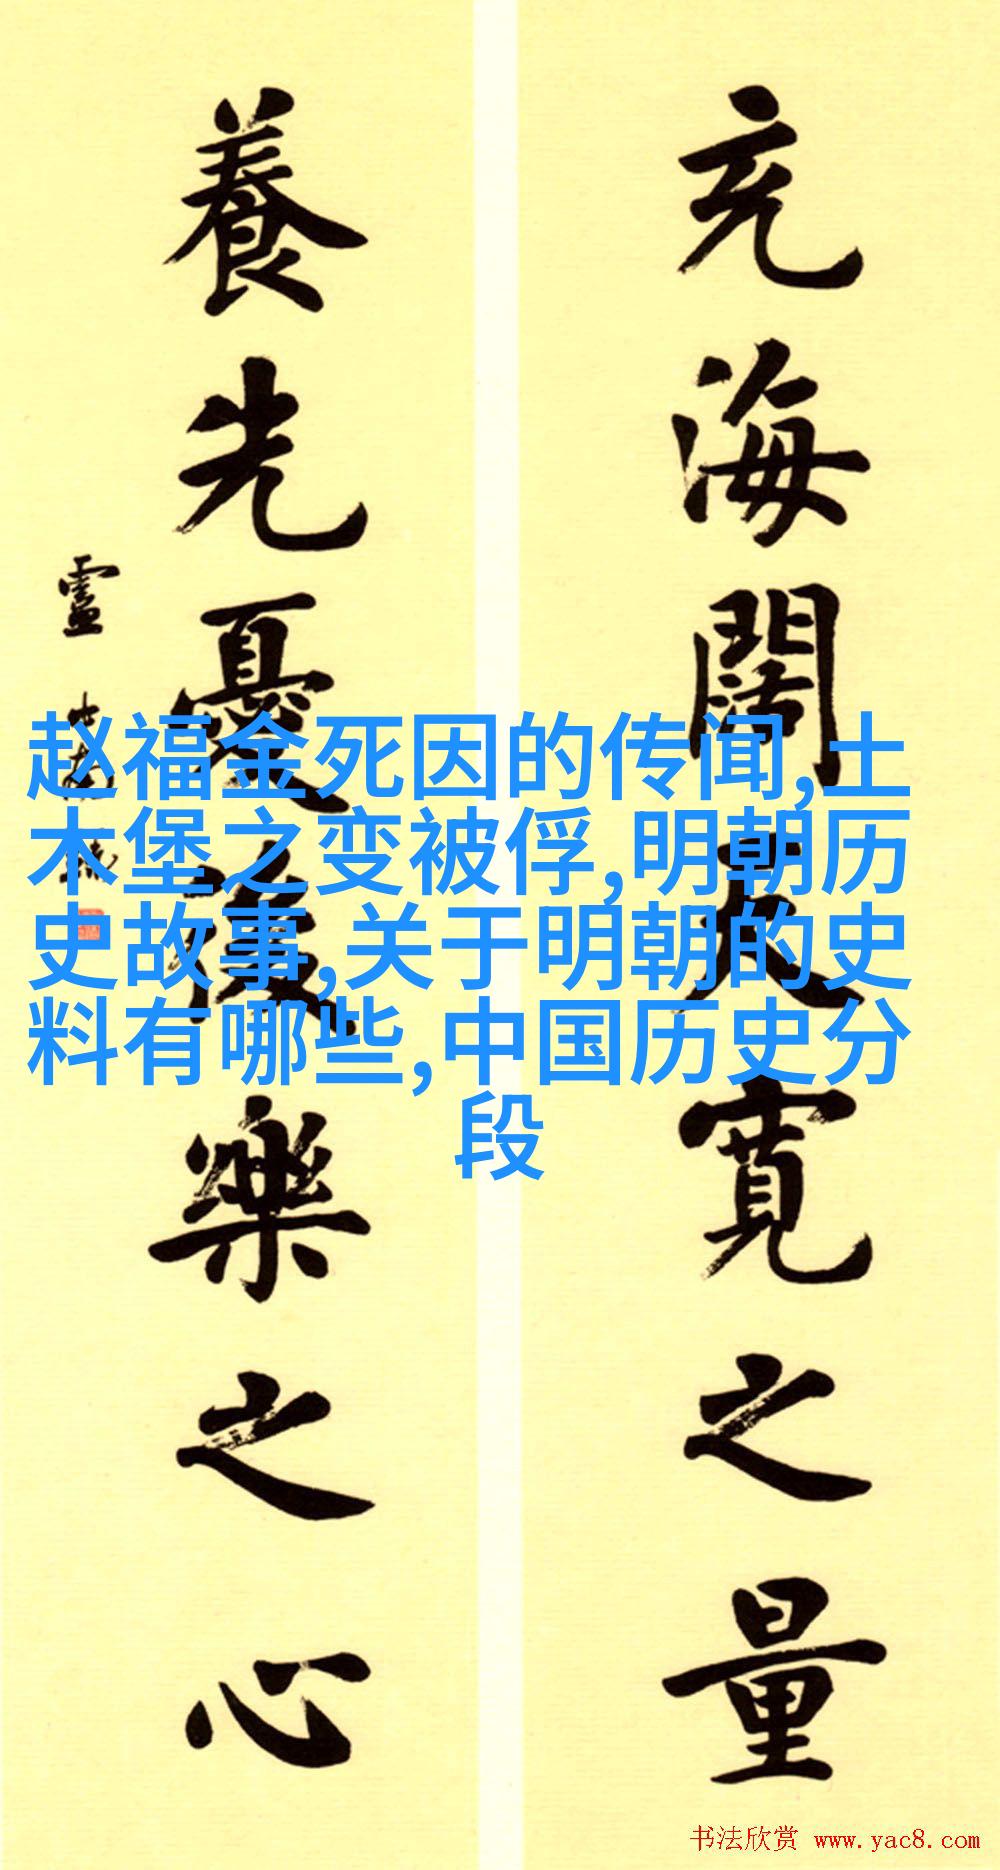 充海闊天寬之量
養先憂後樂之心
赵福金死因的传闻,土
木堡之变被俘,明朝历
史故事,关于明朝的史
料有哪些,中国历史分
段
书法欣赏 www.yac8.com